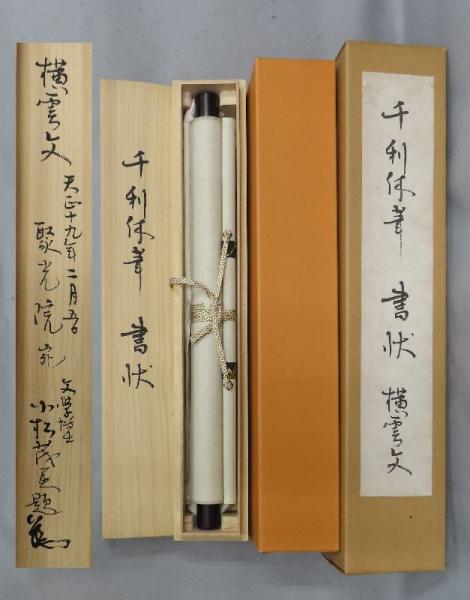 横雲文
天正十九年二月五日
聚光院宛
文学博士
小松茂美題
千利休筆 書状
千利休筆 書状 横雲文